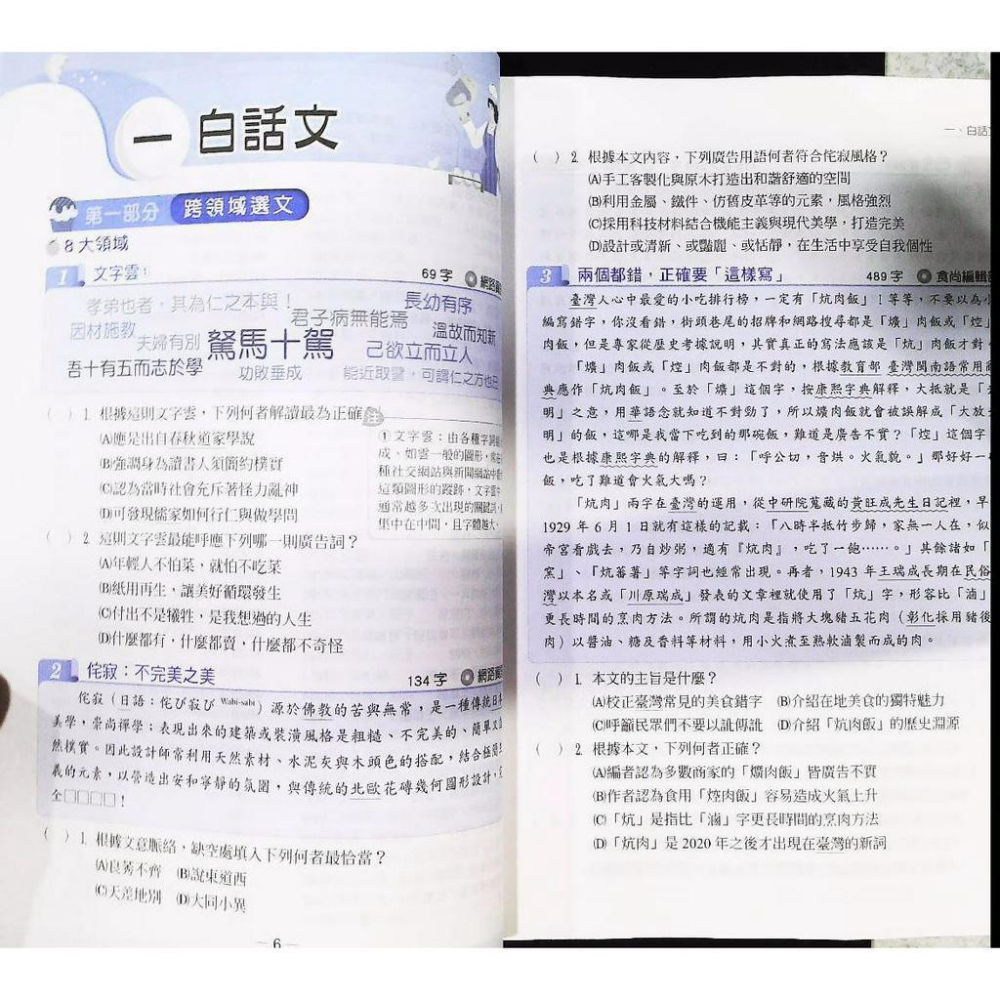 一 白話文
第一部分 跨領域選文
8大領域
1 文字雲① 69字 網路
孝弟也者,其為仁之本與! 長幼有序
因材施教 君子病無能焉 溫故而知新
夫婦有別 駑馬十駕 己欲立而立人
吾十有五而志於學 功敗垂成 能近取譬,可謂仁之方也已
( )1. 根據這則文字雲,下列何者解讀最為正確
(A)應是出自春秋道家學說
(B)強調身為讀書人須簡約樸實
(C)認為當時社會充斥著怪力亂神
(D)可發現儒家如何行仁與做學問
注
①文字雲:由各種字詞組
成、如雲一般的圖形,常在
種社交網站與新聞網站中看
這類圖形的蹤跡,文字雲中
通常越多次出現的關鍵詞,
集中在中間,且字體越大。
( )2. 這則文字雲最能呼應下列哪一則廣告詞?
(A)年輕人不怕菜,就怕不吃菜
(B)紙用再生,讓美好循環發生
(C)付出不是犧牲,是我想過的人生
(D)什麼都有,什麼都賣,什麼都不奇怪
2 侘寂:不完美之美 134字 網路
侘寂(日語:侘び寂び Wabi-sabi)源於佛教的苦與無常,是一種傳統日
美學,崇尚禪學;表現出來的建築或裝潢風格是粗糙、不完美的、簡單又
然樸實。因此設計師常利用天然素材、水泥灰與木頭色的搭配,結合極簡
義的元素,以營造出安和寧靜的氛圍,與傳統的北歐花磚幾何圖形設計,
全□□□□!
( )1. 根據文意脈絡,缺空處填入下列何者最恰當?
(A)良莠不齊 (B)說東道西
(C)天差地別 (D)大同小異
— 6 —
一、白話
( )2. 根據本文內容,下列廣告用語何者符合侘寂風格?
(A)手工客製化與原木打造出和諧舒適的空間
(B)利用金屬、鐵件、仿舊皮革等的元素,風格強烈
(C)採用科技材料結合機能主義與現代美學,打造完美
(D)設計或清新、或豔麗、或恬靜,在生活中享受自我個性
3 兩個都錯,正確要「這樣寫」 489字 食尚編輯
臺灣人心中最愛的小吃排行榜,一定有「炕肉飯」!等等,不要以為小
編寫錯字,你沒看錯,街頭巷尾的招牌和網路搜尋都是「爌」肉飯或「焢」
肉飯,但是專家從歷史考據說明,其實真正的寫法應該是「炕」肉飯才對。
「爌」肉飯或「焢」肉飯都是不對的,根據教育部 臺灣閩南語常用
典應作「炕肉飯」。至於「爌」這個字,按康熙字典解釋,大抵就是「
明」之意,用華語念就知道不對勁了,所以爌肉飯就會被誤解成「大放
明」的飯,這哪是我當下吃到的那碗飯,難道是廣告不實?「焢」這個字
也是根據康熙字典的解釋,曰:「呼公切,音烘。火氣貌。」那好好一
飯,吃了難道會火氣大嗎?
「炕肉」兩字在臺灣的運用,從中研院蒐藏的黃旺成先生日記裡,早
1929年6月1日就有這樣的記載:「八時半抵竹步歸,家無一人在,似
帝宮看戲去,乃自炒粥,適有『炕肉』,吃了一飽……。」其餘諸如「
窯」、「炕蕃薯」等字詞也經常出現。再者,1943年王瑞成長期在民俗
灣以本名或「川原瑞成」發表的文章裡就使用了「炕」字,形容比「滷」
更長時間的烹肉方法。所謂的炕肉是指將大塊豬五花肉(彰化採用豬後
肉)以醬油、糖及香料等材料,用小火煮至熟軟滷製而成的肉。
( )1. 本文的主旨是什麼?
(A)校正臺灣常見的美食錯字 (B)介紹在地美食的獨特魅力
(C)呼籲民眾們不要以訛傳訛 (D)介紹「炕肉飯」的歷史淵源
( )2. 根據本文,下列何者正確?
(A)編者認為多數商家的「爌肉飯」皆廣告不實
(B)作者認為食用「焢肉飯」容易造成火氣上升
(C)「炕」是指比「滷」字更長時間的烹肉方法
(D)「炕肉」是2020年之後才出現在臺灣的新詞